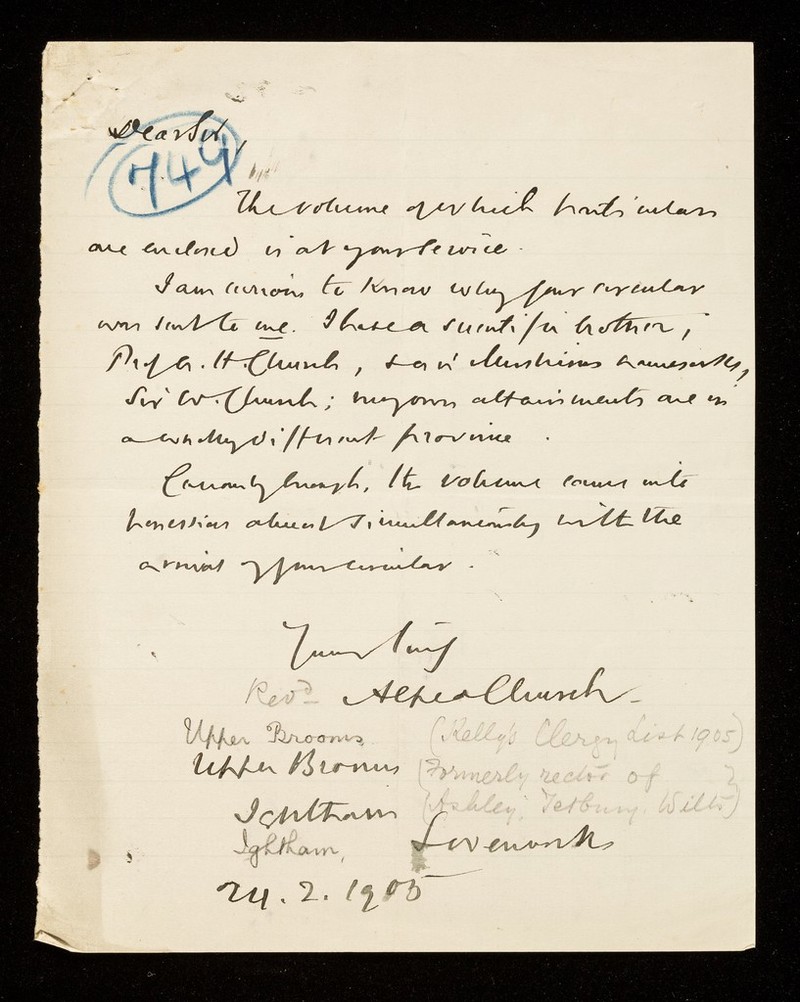 Dear Sir,
749
The volume of which particulars
are enclosed is at your service.
I am curious to know why your circular
was sent to me. I have a scientific brother,
Prof A. H. Church, & an illustrious namesake,
Sir W. Church; my own attainments are in
a wholly different province.
Curiously enough, the volume came into
possession almost simultaneously with the
arrival of your circular.
Yours truly
Revd Alfred Church
Upper Brooms (Kelly's Clergy List 1905)
Upper Brooms (Formerly rector of }
Ightham (Ashley, Tetbury, Wilts)
Ightham, Sevenoaks
24. 2. 1905